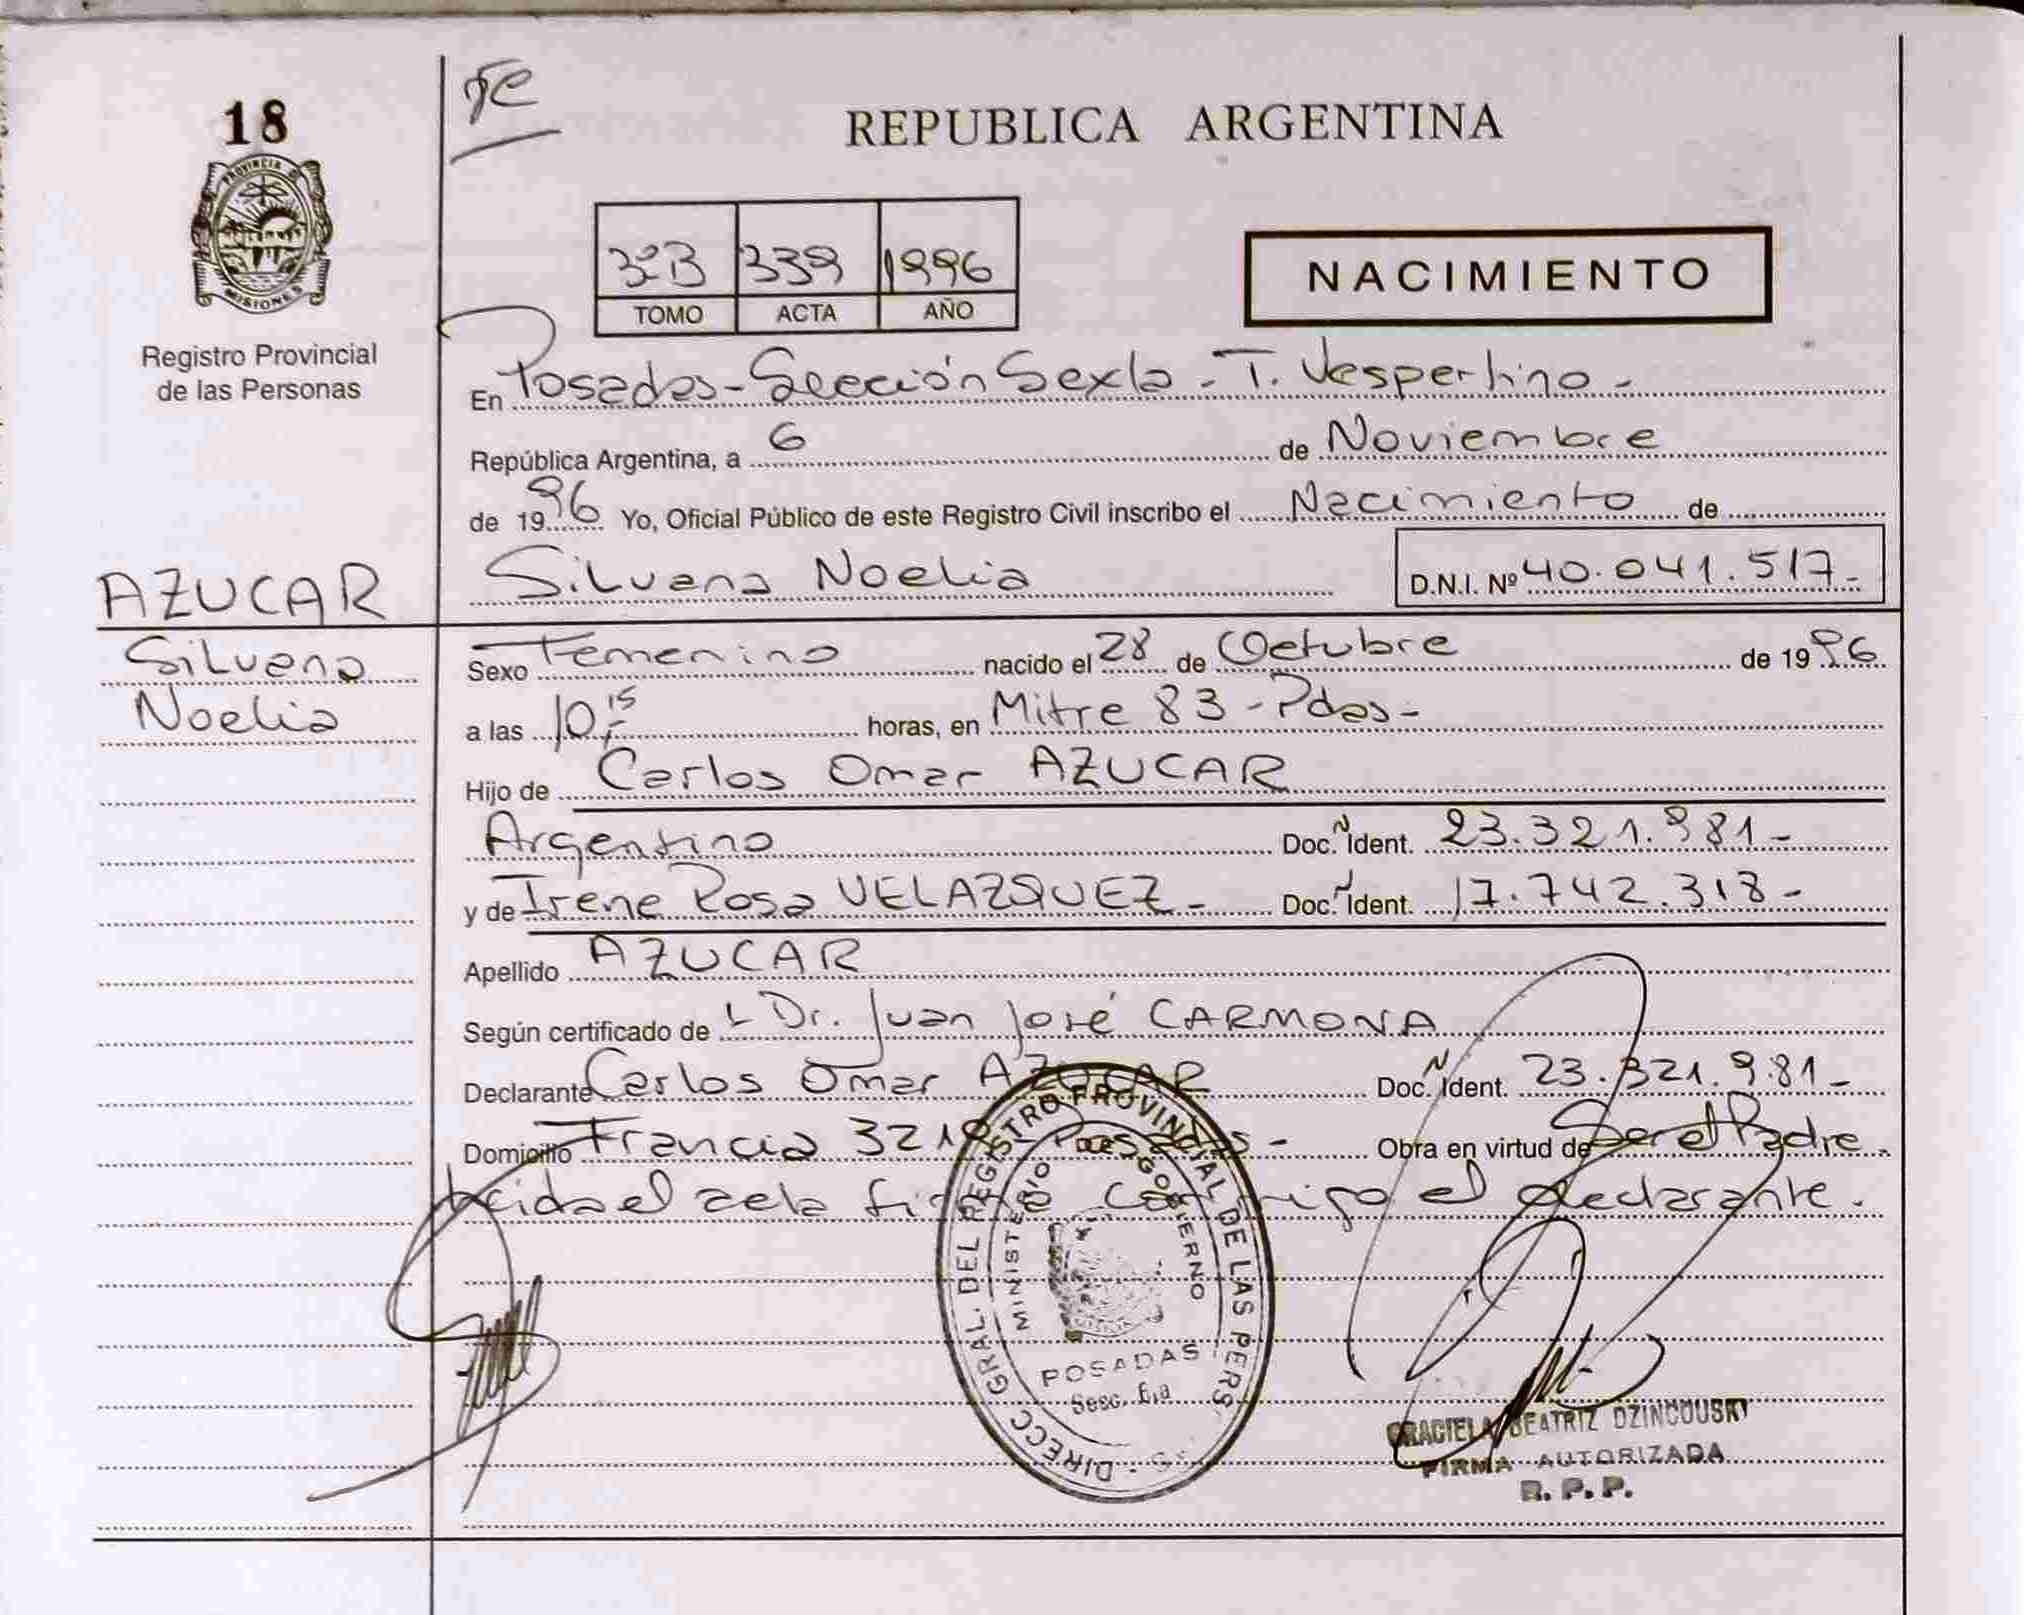 18
PROVINCIA DE
MISIONES
Registro Provincial
de las Personas
REPUBLICA ARGENTINA
3ºB 339 1996
TOMO ACTA AÑO
NACIMIENTO
En Posadas - Sección Sexta - T. Vespertino -
República Argentina, a 6 de Noviembre
de 1996 Yo, Oficial Público de este Registro Civil inscribo el Nacimiento de
AZUCAR
Silvana Noelia D.N.I. Nº 40.041.517-
Silvana
Noelia
Sexo Femenino nacido el 28 de Octubre de 1996
a las 10,15 horas, en Mitre 83 - Pdas -
Hijo de Carlos Omar AZUCAR
Argentino Doc. N Ident. 23.321.981-
y de Irene Rosa VELAZQUEZ - Doc. N Ident. 17.742.318-
Apellido AZUCAR
Según certificado de Dr. Juan José CARMONA
Declarante Carlos Omar AZUCAR Doc. N Ident. 23.321.981-
Domicilio Francia 3210 - Posadas - Obra en virtud de Ser el Padre.
Leida el acta firma conmigo el declarante.
DIRECC GRAL. DEL REGISTRO PROVINCIAL DE LAS PERS.
MINISTERIO GOBIERNO
POSADAS
Secc. 6ta
GRACIELA BEATRIZ DZINCOUSKI
FIRMA AUTORIZADA
R. P. P.